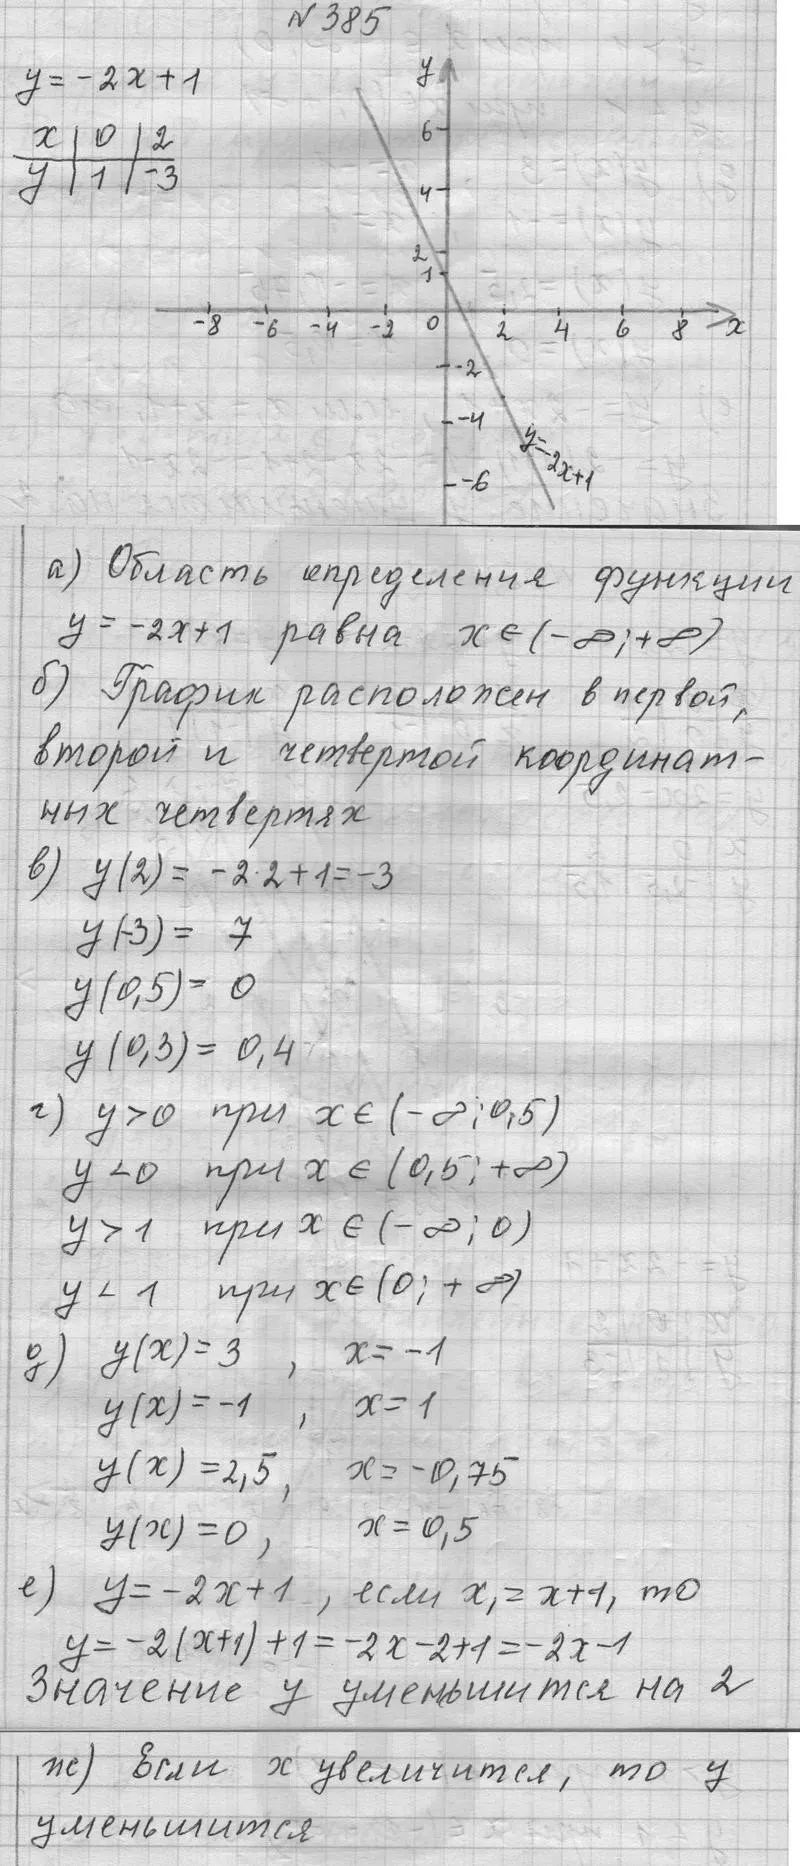 № 385
y = -2x + 1
x | 0 | 2
y | 1 | -3
y
6
4
2
1
-8 -6 -4 -2 0 2 4 6 8 x
-2
-4
-6
y=-2x+1
а) Область определения функции
y = -2x+1 равна x∈(-∞;+∞)
б) График расположен в первой,
второй и четвертой координат-
ных четвертях
в) y(2) = -2·2+1=-3
y(-3) = 7
y(0,5) = 0
y(0,3) = 0,4
г) y>0 при x∈(-∞;0,5)
y<0 при x∈(0,5;+∞)
y>1 при x∈(-∞;0)
y<1 при x∈(0;+∞)
д) y(x)=3, x=-1
y(x)=-1, x=1
y(x)=2,5, x=-0,75
y(x)=0, x=0,5
е) y=-2x+1, если x₁=x+1, то
y=-2(x+1)+1=-2x-2+1=-2x-1
Значение y уменьшится на 2
ж) Если x увеличится, то y
уменьшится